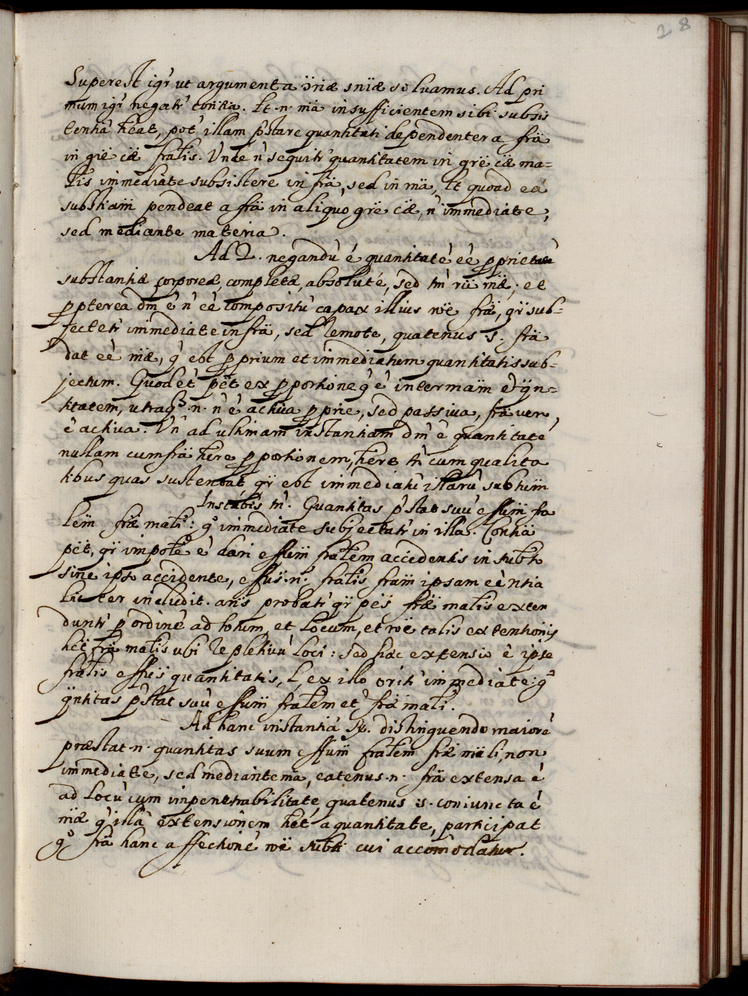 28
Superest igr̃ ut argumenta ɔ̃riæ sñiæ soluamus. Ad pri
mum igr̃ negatr̃ conña. Et .n. mã insufficientem sibi subsis
tentiã heat, pot̃ illam p̃stare quantitati dependenter a frã
in gr̃e cæ fralis. Unde ñ sequitr̃ quantitatem in gr̃e cæ ma=
tlis immediate subsistere in frã, sed in mã, et quoad eã
subst̃iam pendeat a frã in aliquo gr̃e cæ, ñ immediate,
sed mediante materia.
Ad 2. negandũ ẽ quantitatẽ ẽẽ pprietatẽ
substantiæ corporeæ, completæ, absolutẽ, sed tm̃ rũ mæ; et
ppterea dm̃ ẽ ñ ẽẽ compositũ capax illius rõe fræ, qr̃ sub=
jectetr̃ immediate in frã, sed remote, quatenus .s. frã
dat ẽẽ mæ, q̃ est pprium et immediatum quantitatis sub=
jectum. Quod et p̃et ex pportione q̃ ẽ inter mam̃ et qñ=
titatem, utraq̃ .n. ñ ẽ actiua pprie, sed passiua, frã verò
ẽ actiua. Uñ ad ultimam instantiam dm̃ ẽ quantitatẽ
nullam cum frã here pportionem, here tñ cum qualita
tibus quas sustentat qr̃ est immediatũ illarũ subtum̃
Instabis tñ. Quantitas p̃stat suũ effum̃ fra
lem̃ fræ matli: g̊ immediate subjectatr̃ in illa. Conña
p̃et, qr̃ impole ẽ dari effum̃ fralem accidentis in subto
sine ipso accidente, effus̃ .n. fralis fram̃ ipsam eẽntia
liter includit. ans̃ probatr̃ qr̃ p̃es fræ matlis exten
duntr̃ p ordinẽ ad totum et Locum, et rõe talis extentionis
het frã matlis ubi repletiuũ Loci: sed hæc extensio ẽ ipse
fralis effus̃ quantitatis, L ex illo oritr̃ immediate: g̊
qñtitas p̃stat suũ effum̃ fralem et frã matli.
Ad hanc instantiã R̃. distinguendo maiorẽ
præstat .n. quantitas suum effum̃ fralem fræ matli, non
immediate, sed mediante mã, eatenus .n. frã extensa ẽ
ad Locũ cum impenetrabilitate, quatenus .s. coniuncta ẽ
mæ q̃ illã extensionem het a quantitate, participat
g̊ frã hanc affectionẽ rõe subti cui accõmodatur.